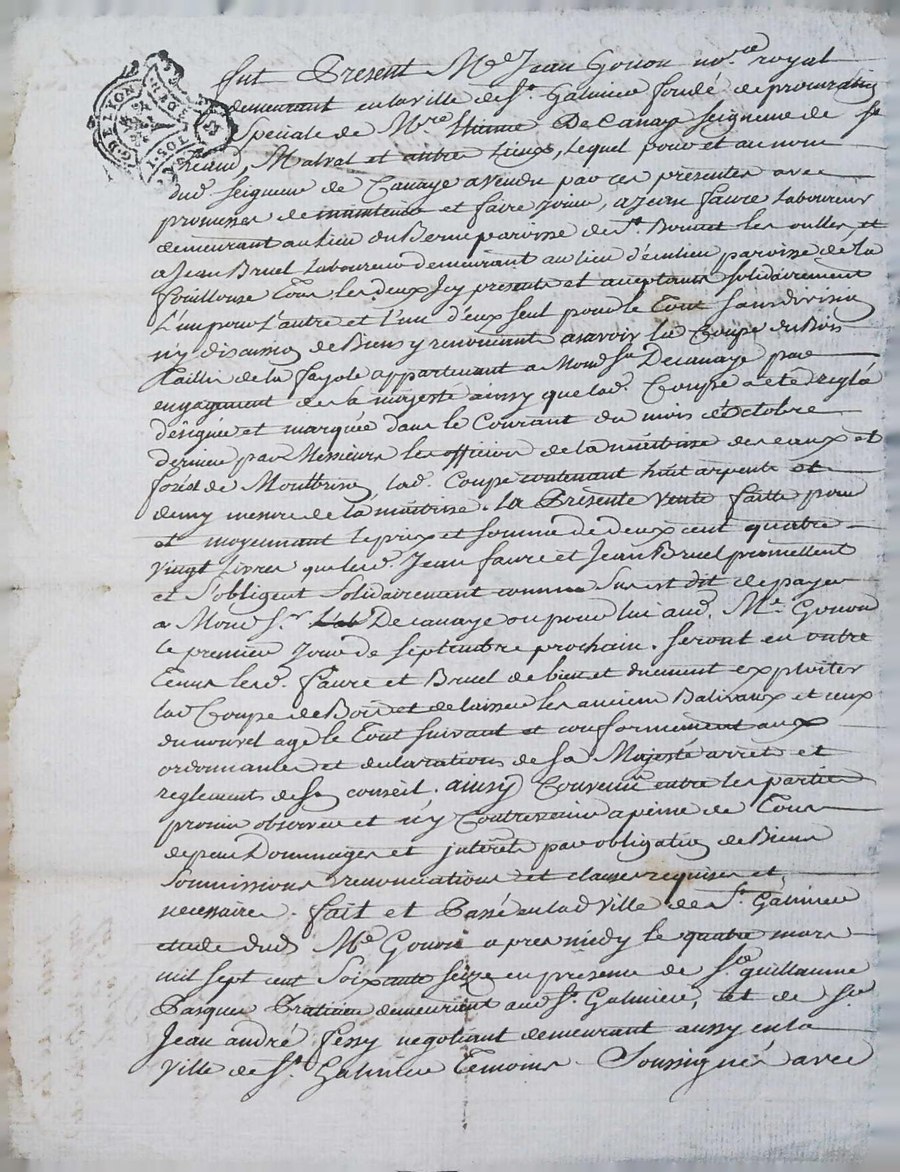 G. DE LYON
fut Present Me Jean Gonon nore royal
demeurant en la ville de St. Galmier fondé de procuration
Speciale de Mre Etienne De Canaye Seigneur de
Malval et autres Lieux, lequel pour et au nom
dud. Seigneur de Canaye a vendu par ces presentes avec
promesses de maintenir et faire Jouir, a Jean faure Laboureur
demeurant au lieu du Berne paroisse de St. Bonnet les oulles et
a Jean Bruel Laboureur demeurant au lieu d'enlieu paroisse de La
fouillouse Tous les deux Icy presents et acceptants solidairement
L'un pour L'autre et l'un d'eux seul pour le Tout sans division
n'y discussion de Biens y renonçant a savoir La Coupe du Bois
Taillis de la fayole appartenant a Mond Sr Decanaye par
engagement de sa majesté ainsy que lad. Coupe a eté reglé
désignée et marquée dans le Courant du mois d'octobre
dernier par Messieurs les officiers de la maitrise des eaux et
forest de Montbrison, lad. Coupe contenant huit arpents et
demy mesure de la maitrise. La Presente vente faitte pour
et moyennant le prix et somme de deux cent quatre
vingt Livres que lesd. Jean faure et Jean Bruel promettent
et s'obligent Solidairement comme Sus est dit de payer
a Mond Sr. Decanaye ou pour lui aud. Me. Gonon
le premier Jour de septembre prochain. Seront en outre
Tenus lesd. faure et Bruel de bien et duement exploiter
lad Coupe de Bois et de laisser les anciens Balivaux et ceux
du nouvel age le Tout suivant et conformement aux
ordonnances et declarations de sa Majesté arrets et
reglements de son conseil. ainsy Convenu entre les parties
promis observer et n'y Contrevenir a peine de Tous
depens Dommages et jnterêts par obligation de Biens
Soumissions renonciations et clauses requises et
necessaires. fait et Passé en lad ville de St. Galmier
etude dud Me Gonon apres midy le quatre mars
mil sept cent Soixante seize en presence de Sr. guillaume
Pasquier Praticien demeurant aud St. Galmier, et de Sr
Jean andré fessy negotiant demeurant aussy en la
Ville de St. Galmier Temoins Soussignés avec